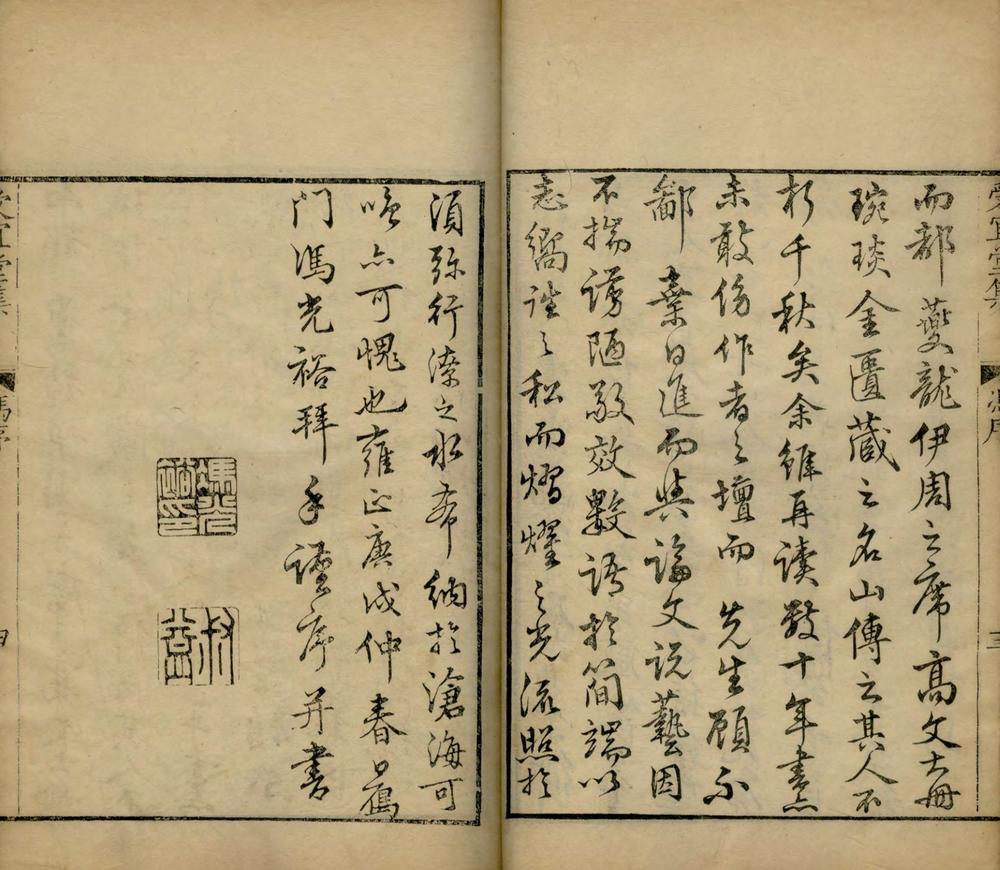 受宜堂集 馮序 三
而都 夔龍伊周之席高文大冊
琬琰金匱藏之名山傳之其人不
朽千秋矣余雖再讀數十年書亦
未敢傍作者之壇而 先生顧不
鄙 棄日進而與論文說藝因
不揣謭陋敬效數語於簡端以
志嚮往之私而熠燿之光流照於
須彌行潦之水希納於滄海可
嗤亦可愧也雍正庚戌仲春日鴈
門馮光裕拜手謹序并書
馮光裕印
叔益
受宜堂集 馮序 四